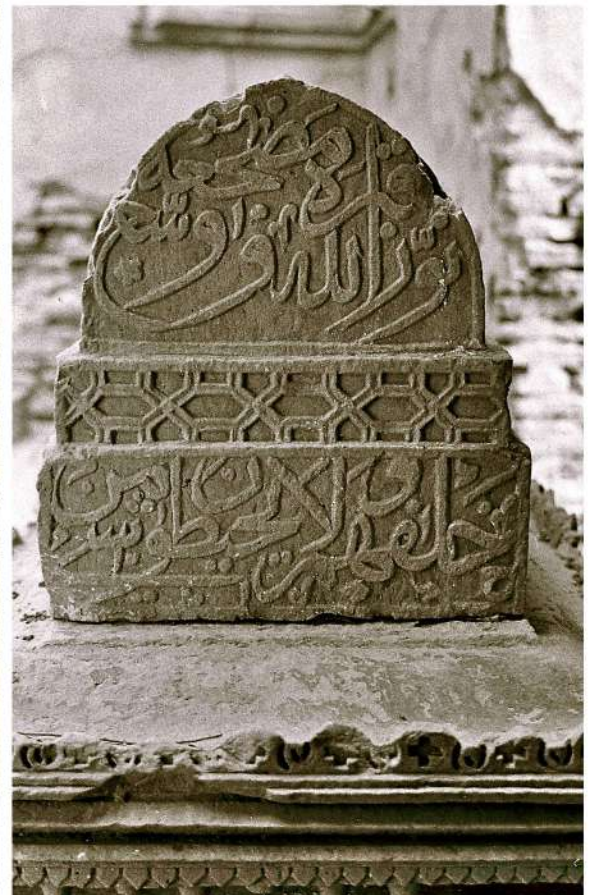 نوّر الله قبره و وسّع مضجعه
خلفهم ولا يحيطون بشيء من